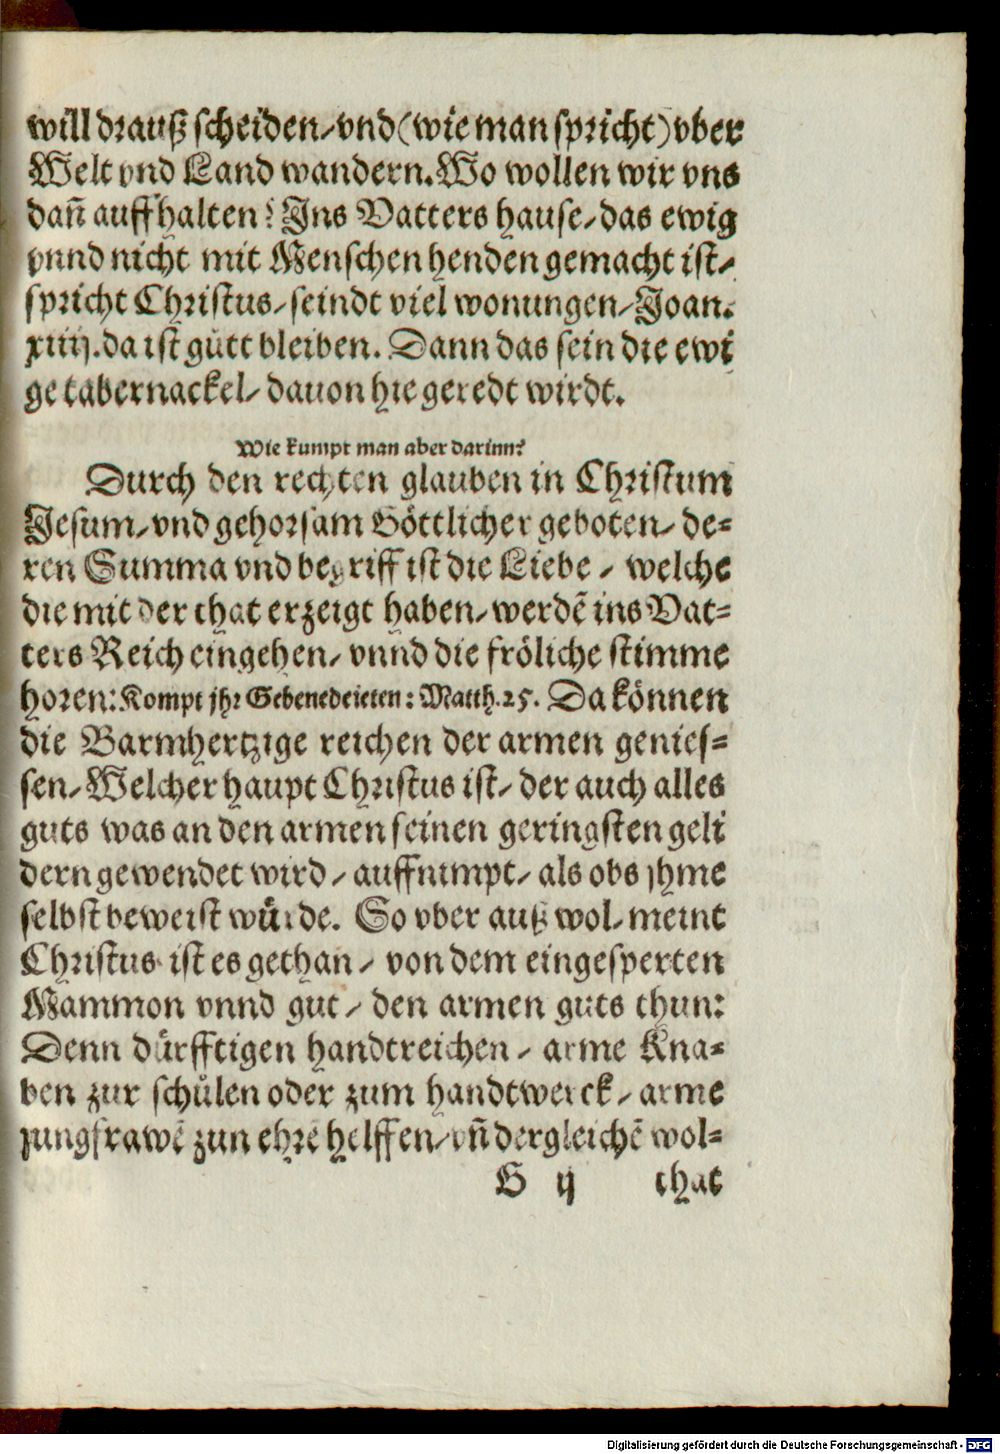 will drauß scheiden/ vnd (wie man spricht) vber
Welt vnd Land wandern. Wo wollen wir vns
dañ auffhalten? Ins Vatters hause/ das ewig
vnnd nicht mit Menschen henden gemacht ist/
spricht Christus/ seindt viel wonungen/ Joan.
xiiij. da ist gůtt bleiben. Dann das sein die ewi
ge tabernackel/ dauon hie geredt wirdt.
Wie kumpt man aber darinn?
Durch den rechten glauben in Christum
Jesum/ vnd gehorsam Göttlicher geboten/ de=
ren Summa vnd begriff ist die Liebe/ welche
die mit der that erzeigt haben/ werdē ins Vat=
ters Reich eingehen/ vnnd die fröliche stimme
horen: Kompt jhr Gebenedeieten: Matth. 25. Da können
die Barmhertzige reichen der armen genies=
sen/ Welcher haupt Christus ist/ der auch alles
guts was an den armen seinen geringsten geli
dern gewendet wird/ auffnimpt/ als obs jhme
selbst beweist würde. So vber auß wol/ meint
Christus ist es gethan/ von dem eingesperten
Mammon vnnd gut/ den armen guts thun:
Denn dürfftigen handtreichen/ arme Kna=
ben zur schůlen oder zum handtwerck/ arme
jungfrawē zun ehrē helffen/ vñ dergleichē wol=
G ij that
Digitalisierung gefördert durch die Deutsche Forschungsgemeinschaft - DFG